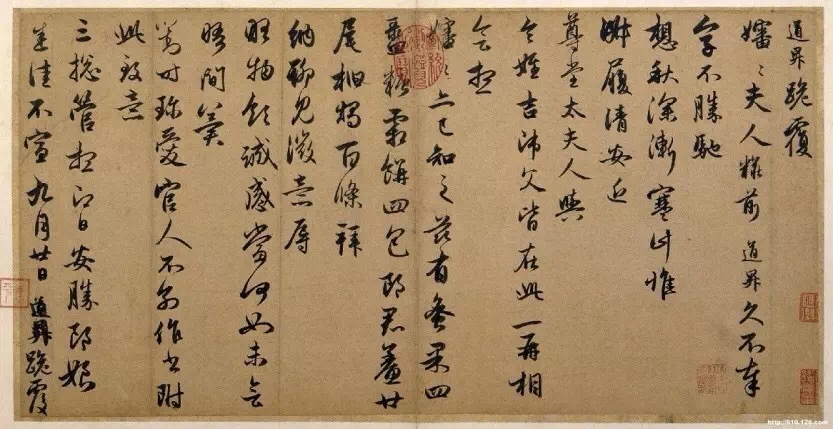 道昇跪覆
嬸〻夫人粧前道昇久不奉
字不勝馳
想秋深漸寒計惟
淑履清安近
尊堂太夫人與
令姪吉師父皆在此一再相
會想
嬸〻亦已知之茲有蜜果四
盝糖霜餅四包郎君鯗廿
尾柏燭百條拜
納聊見微意辱
物領誠感當何如未會
晤間冀
對時珎愛官人不別作書附
此致意
三總管想即日安勝郎娘
悉佳不宣九月廿日道昇跪覆